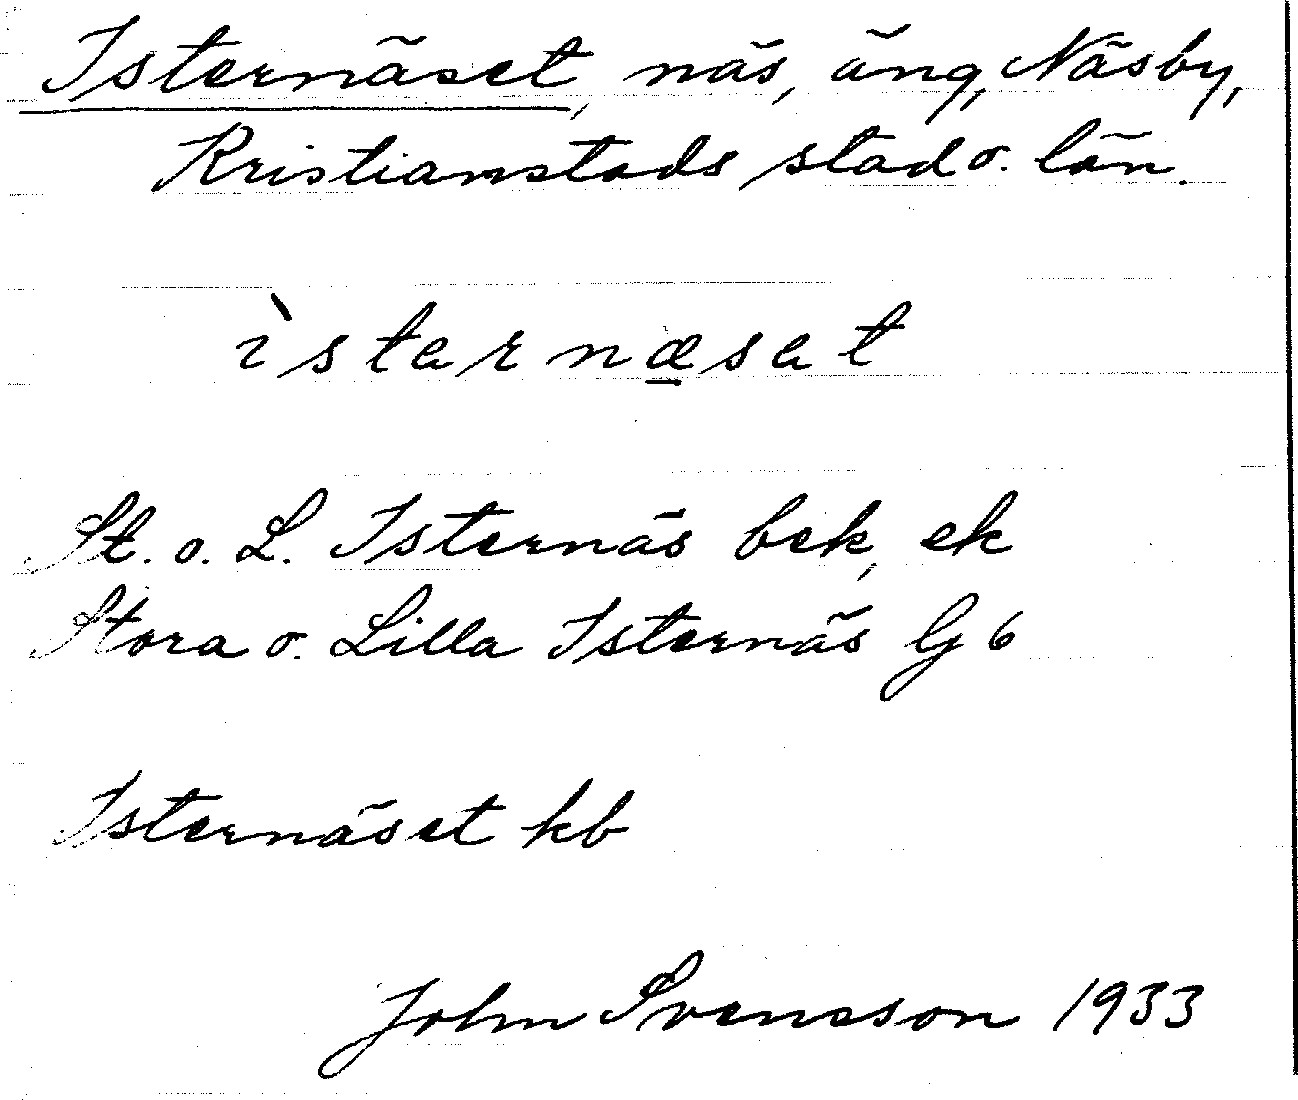 Isternäset, näs, äng, Näsby,
Kristianstads stad o. län.
ìstarnæsat
St. o. L. Isternäs bek, ek
Stora o. Lilla Isternäs G 6
Isternäset kb
John Svensson 1933